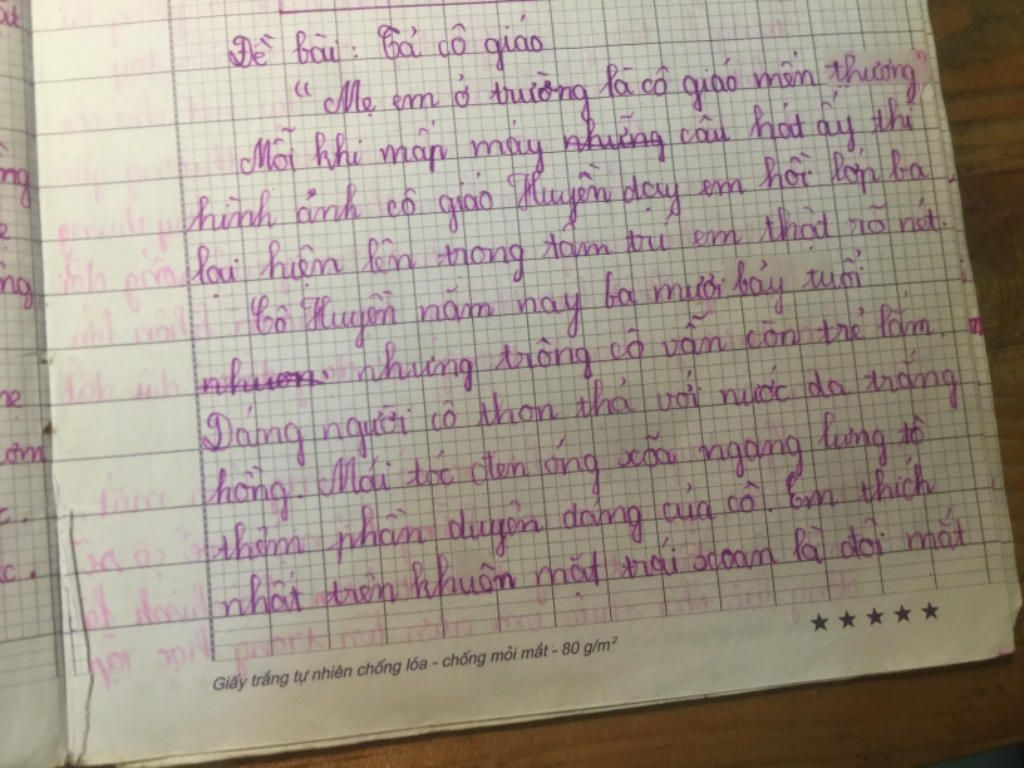 Đề bài: Tả cô giáo
"Mẹ em ở trường là cô giáo mến thương"
Mỗi khi mấp máy những câu hát ấy thì
hình ảnh cô giáo Huyền dạy em hồi lớp ba
lại hiện lên trong tâm trí em thật rõ nét.
Cô Huyền năm nay ba mươi bảy tuổi
nhưng trông cô vẫn còn trẻ lắm.
Dáng người cô thon thả với nước da trắng
hồng. Mái tóc đen óng xõa ngang lưng tô
thêm phần duyên dáng của cô. Em thích
nhất trên khuôn mặt trái xoan là đôi mắt
Giấy trắng tự nhiên chống lóa - chống mỏi mắt - 80 g/m²